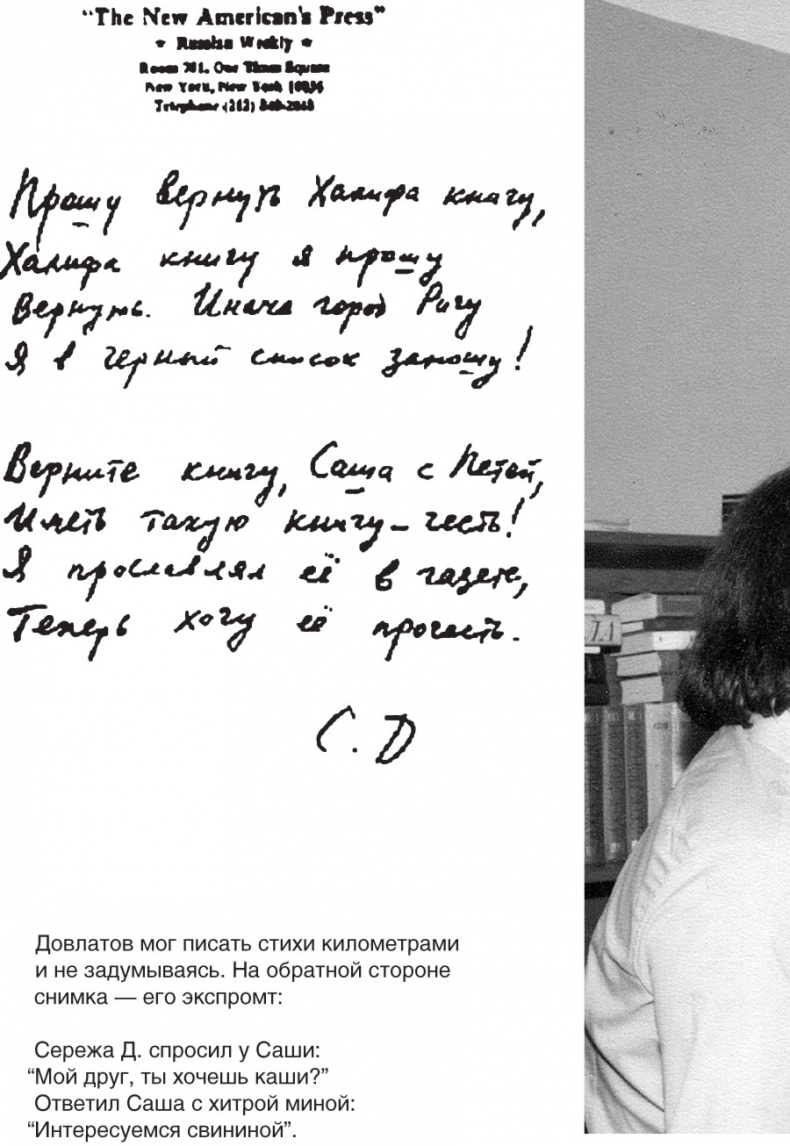 “The New American's Press”
★ Russian Weekly ★
Room 701, One Times Square
New York, New York 10036
Telephone (212)
Прошу вернуть Халифа книгу,
Халифа книгу я прошу
Вернуть. Иначе город Ригу
Я в черный список заношу!
Верните книгу, Саша с Петей,
Иметь такую книгу – честь!
Я прославлял её в газете,
Теперь хочу её прочесть.
С. Д
ЛА
Довлатов мог писать стихи километрами
и не задумываясь. На обратной стороне
снимка — его экспромт:
Сережа Д. спросил у Саши:
“Мой друг, ты хочешь каши?”
Ответил Саша с хитрой миной:
“Интересуемся свининой”.